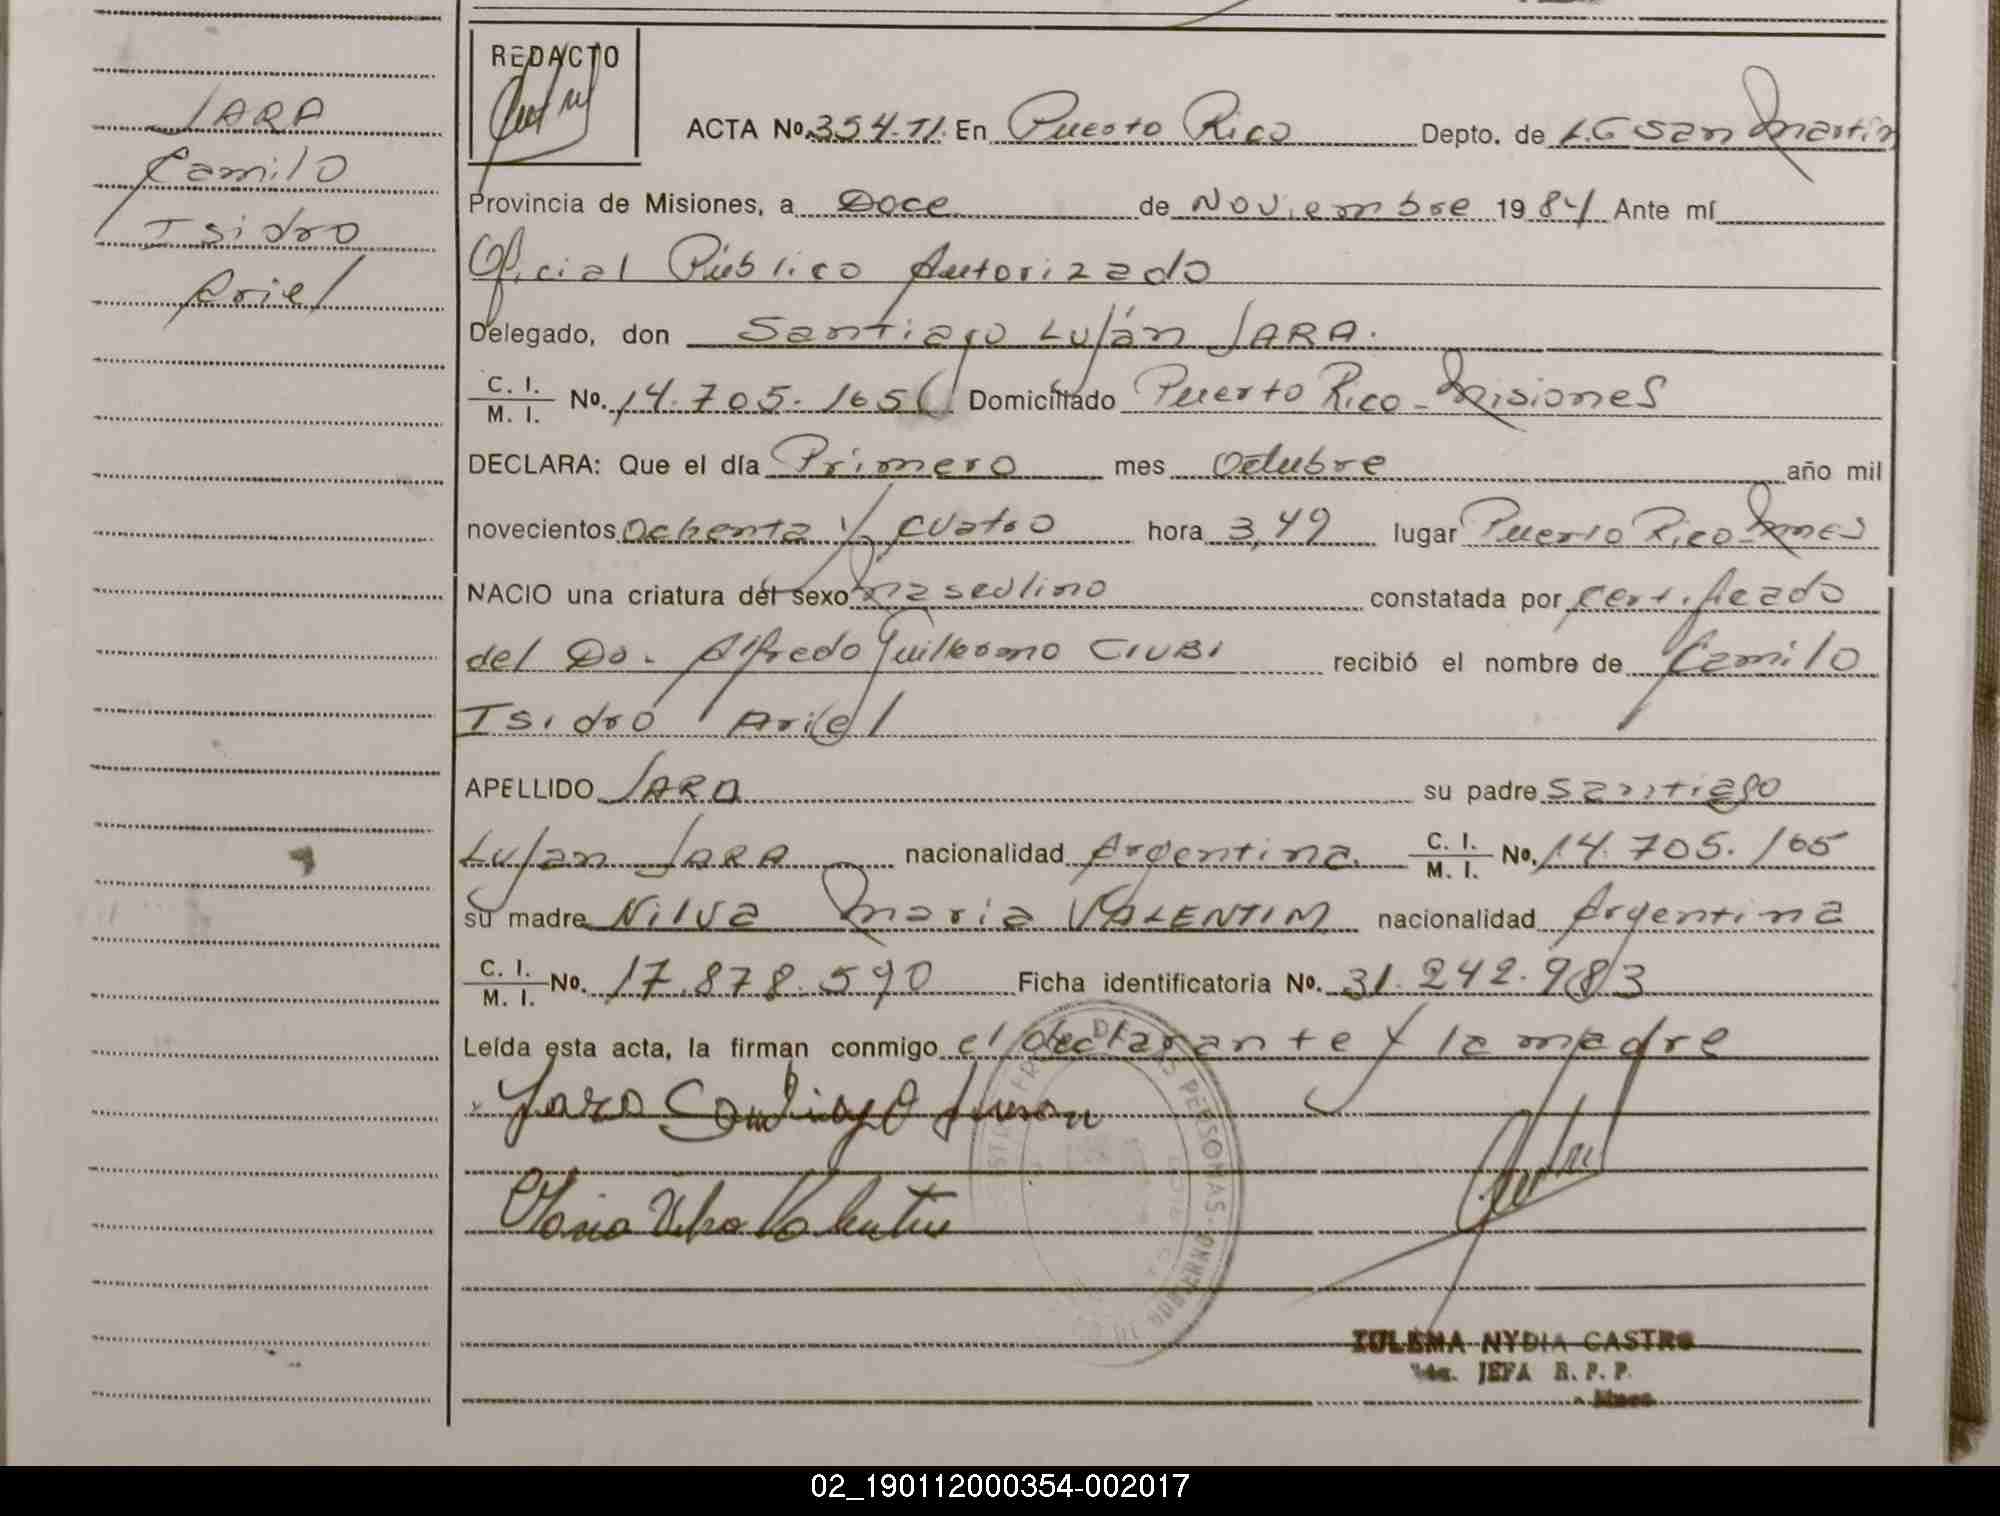 JARA
Camilo
Isidro
Ariel
REDACTO
ACTA No. 354.T1. En Puerto Rico Depto. de L.G San Martín
Provincia de Misiones, a Doce de Noviembre 1984 Ante mí
Oficial Público Autorizado
Delegado, don Santiago Luján JARA.
C. I. / M. I. No. 14.705.165 Domiciliado Puerto Rico - Misiones
DECLARA: Que el día Primero mes Octubre año mil
novecientos Ochenta y cuatro hora 3,49 lugar Puerto Rico - Mnes
NACIO una criatura del sexo masculino constatada por certificado
del Dr. Alfredo Guillermo CIUBI recibió el nombre de Camilo
Isidro Ariel
APELLIDO JARA su padre Santiago
Luján JARA nacionalidad Argentina. C. I. / M. I. No. 14.705.165
su madre Nilva María VALENTIM nacionalidad Argentina
C. I. / M. I. No. 17.878.590 Ficha identificatoria No. 31.242.983
Leída esta acta, la firman conmigo el declarante y la madre
Jara Santiago Lujan
Maria Nilva Valentim
ZULEMA NYDIA CASTRO
JEFA R. P. P.
Mnes.
02_190112000354-002017